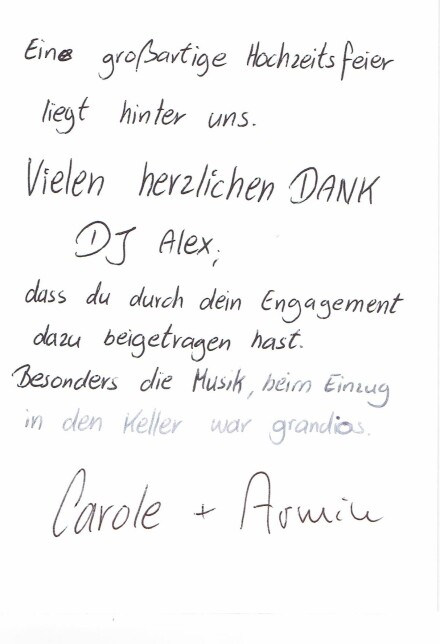 Eine großartige Hochzeitsfeier
liegt hinter uns.
Vielen herzlichen DANK
DJ Alex,
dass du durch dein Engagement
dazu beigetragen hast.
Besonders die Musik, beim Einzug
in den Keller war grandios.
Carole + Armin